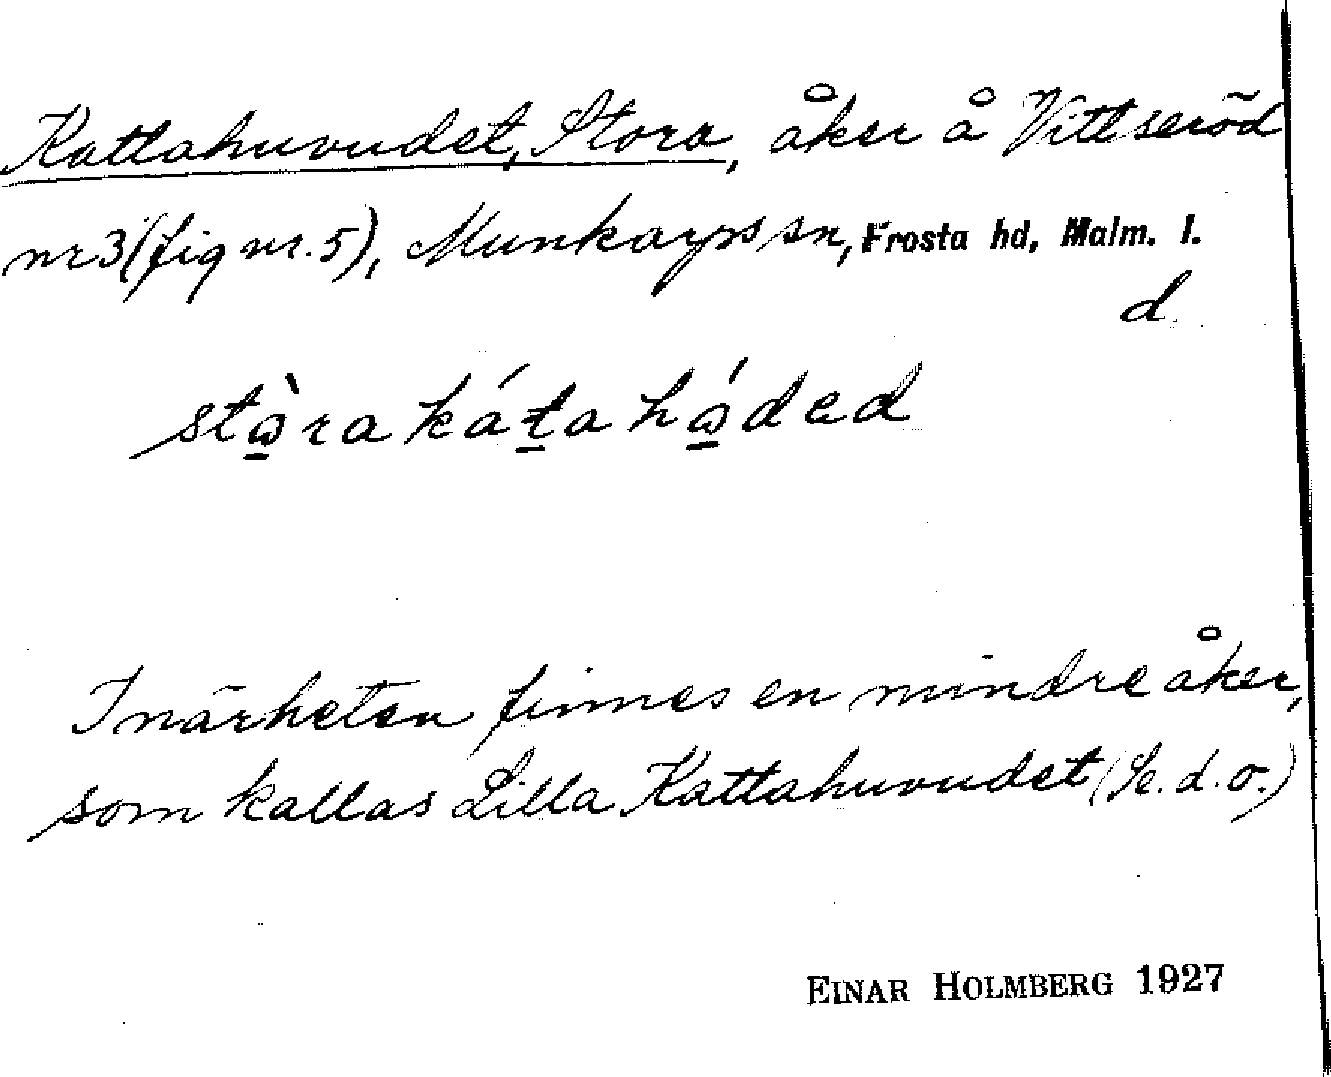 Kattahuvudet, Stora, åker å Vittseröd
nr 3 (fig nr. 5), Munkarps sn, Frosta hd, Malm. l.
d
stὼ̱ra káṯa hώ̱dəd
I närheten finnes en mindre åker,
som kallas Lilla Kattahuvudet (Se. d. o.)
EINAR HOLMBERG 1927